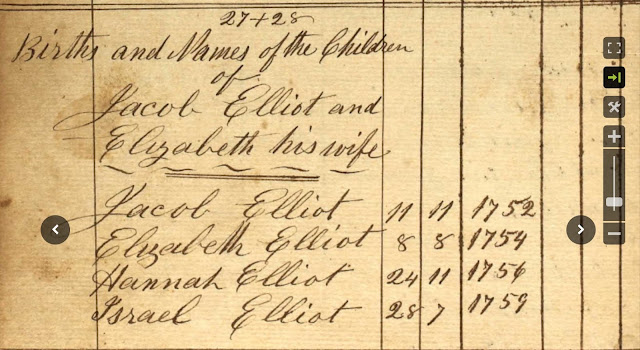 27+28
Births and Names of the Children
of
Jacob Elliot and
Elizabeth his wife
Jacob Elliot 11 11 1752
Elizabeth Elliot 8 8 1754
Hannah Elliot 24 11 1756
Israel Elliot 28 7 1759